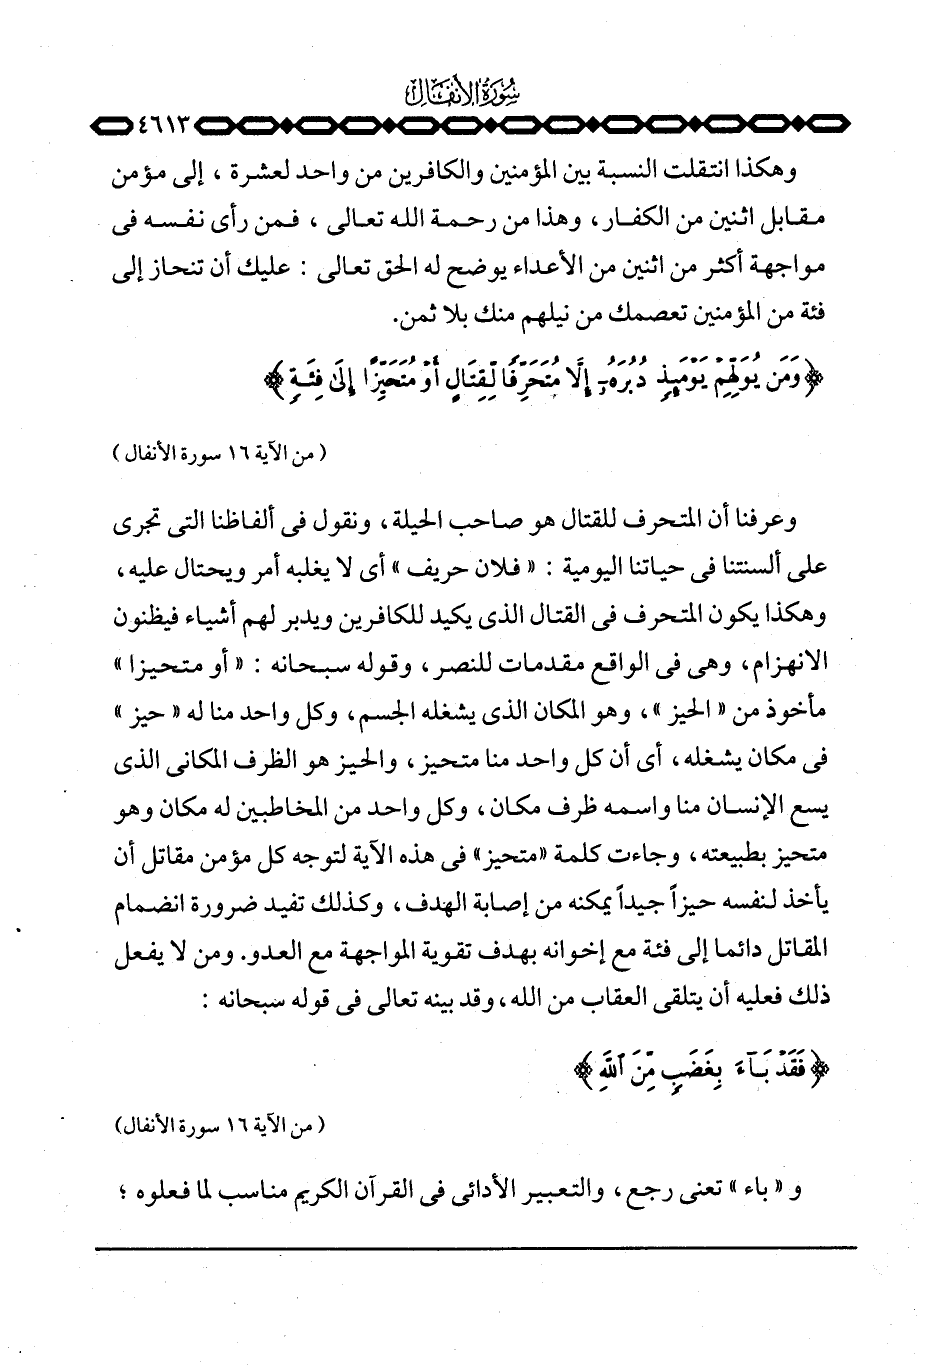 سُورَةُ الأَنفَال
٤٦١٣
وهكذا انتقلت النسبة بين المؤمنين والكافرين من واحد لعشرة ، إلى مؤمن
مقابل اثنين من الكفار، وهذا من رحمة الله تعالى ، فمن رأى نفسه فى
مواجهة أكثر من اثنين من الأعداء يوضح له الحق تعالى : عليك أن تنحاز إلى
فئة من المؤمنين تعصمك من نيلهم منك بلا ثمن.
﴿ وَمَن يُوَلِّهِمْ يَوْمَئِذٍ دُبُرَهُۥٓ إِلَّا مُتَحَرِّفًا لِّقِتَالٍ أَوْ مُتَحَيِّزًا إِلَىٰ فِئَةٍ ﴾
( من الآية ١٦ سورة الأنفال )
وعرفنا أن المتحرف للقتال هو صاحب الحيلة، ونقول فى ألفاظنا التى تجرى
على ألسنتنا فى حياتنا اليومية : « فلان حريف » أى لا يغلبه أمر ويحتال عليه،
وهكذا يكون المتحرف فى القتال الذى يكيد للكافرين ويدبر لهم أشياء فيظنون
الانهزام، وهى فى الواقع مقدمات للنصر، وقوله سبحانه : « أو متحيزا »
مأخوذ من « الحيز »، وهو المكان الذى يشغله الجسم، وكل واحد منا له « حيز »
فى مكان يشغله، أى أن كل واحد منا متحيز، والحيز هو الظرف المكانى الذى
يسع الإنسان منا واسمه ظرف مكان، وكل واحد من المخاطبين له مكان وهو
متحيز بطبيعته، وجاءت كلمة «متحيز» فى هذه الآية لتوجه كل مؤمن مقاتل أن
يأخذ لنفسه حيزاً جيداً يمكنه من إصابة الهدف، وكذلك تفيد ضرورة انضمام
المقاتل دائما إلى فئة مع إخوانه بهدف تقوية المواجهة مع العدو. ومن لا يفعل
ذلك فعليه أن يتلقى العقاب من الله، وقد بينه تعالى فى قوله سبحانه :
﴿ فَقَدْ بَآءَ بِغَضَبٍ مِّنَ ٱللَّهِ ﴾
( من الآية ١٦ سورة الأنفال)
و « باء » تعنى رجع، والتعبير الأدائى فى القرآن الكريم مناسب لما فعلوه ؛